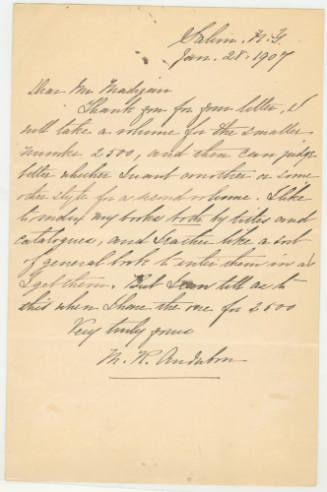 Salem. N.Y.
Jan. 28. 1907
Dear Mr Madigan
Thank you for your letter, I
will take a volume for the smaller
number 2500, and then can judge
better whether I want another or some
other style for a second volume. I like
to index my books both by titles and
catalogues, and rather like a sort
of general book to enter them in as
I get them. But I can tell as to
this when I have the one for 2500
Very truly yours
M. R. Audubon